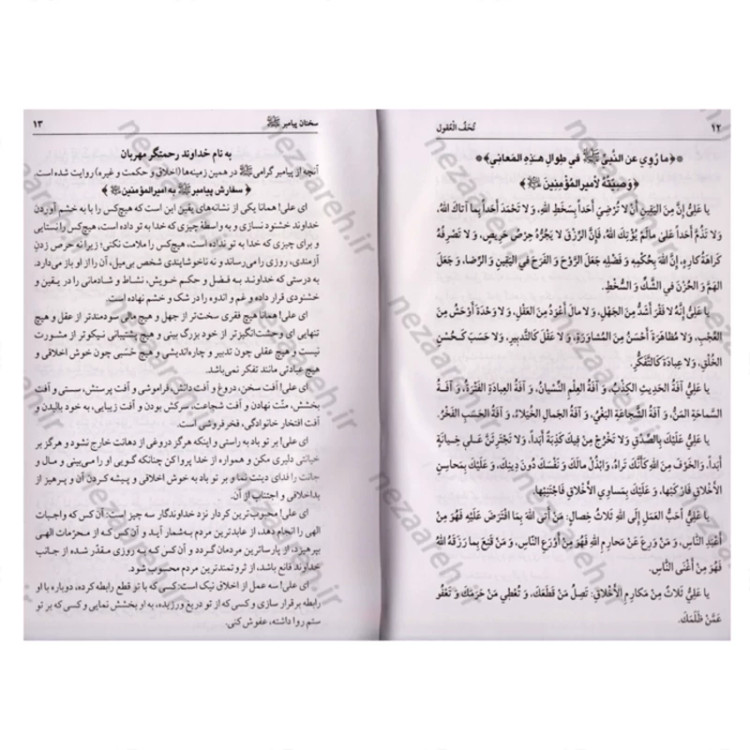 ۱۲
تُحَفُ الْعُقول
﴿ما رُوِيَ عن النَّبيِّ ﷺ في طِوالِ هـذِهِ المَعاني﴾
﴿وَصِيَّتُهُ لأميرِ المُؤْمِنِينَ﴾
يا عَلِيُّ إنَّ مِنَ اليَقينِ أنْ لا تُرْضِيَ أحَداً بِسَخَطِ اللهِ، وَ لا تَحْمَدَ أحَداً بِما آتاكَ اللهُ،
وَ لا تَذُمَّ أحَداً عَلى مالَمْ يُؤْتِكَ اللهُ، فَإنَّ الرِّزْقَ لا يَجُرُّهُ حِرْصُ حَريصٍ، وَ لا تَصْرِفُهُ
كَراهَةُ كارِهٍ، إنَّ اللهَ بِحُكْمِهِ وَ فَضْلِهِ جَعَلَ الرَّوْحَ وَ الفَرَحَ في اليَقينِ وَ الرِّضا، وَ جَعَلَ
الهَمَّ وَ الحُزْنَ في الشَّكِّ وَ السُّخْطِ.
يا عَلِيُّ إنَّهُ لا فَقْرَ أشَدُّ مِنَ الجَهْلِ، وَ لا مالَ أعْوَدُ مِنَ العَقْلِ، وَ لا وَحْدَةَ أوْحَشُ مِنَ
العُجْبِ، وَ لا مُظاهَرَةَ أحْسَنُ مِنَ المُشاوَرَةِ، وَ لا عَقْلَ كَالتَّدْبيرِ، وَ لا حَسَبَ كَـحُسْنِ
الخُلُقِ، وَ لا عِبادَةَ كَالتَّفَكُّرِ.
يا عَلِيُّ آفَةُ الحَديثِ الكِذْبُ، وَ آفَةُ العِلْمِ النِّسْيانُ، وَ آفَةُ العِبادَةِ الفَتْرَةُ، وَ آفَةُ
السَّماحَةِ المَنُّ، وَ آفَةُ الشَّجاعَةِ البَغْيُ، وَ آفَةُ الجَمالِ الخُيَلاءُ، وَ آفَةُ الحَسَبِ الفَخْرُ.
يا عَلِيُّ عَلَيْكَ بِالصِّدْقِ وَ لا تَخْرُجْ مِنْ فيكَ كَذِبَةٌ أبَداً، وَ لا تَجْتَرِئَنَّ عَـلى خِـيانَةٍ
أبَداً، وَالخَوْفَ مِنَ اللهِ كَأنَّكَ تَراهُ، وَابْذُلْ مالَكَ وَ نَفْسَكَ دُونَ دينِكَ، وَ عَلَيْكَ بِمَحاسِنِ
الأخْلاقِ فَارْكَبْها، وَ عَلَيْكَ بِمَساوِي الأخْلاقِ فَاجْتَنِبْها.
يا عَلِيُّ أحَبُّ العَمَلِ إلَى اللهِ ثَلاثُ خِصالٍ: مَنْ أتَى اللهَ بِمَا افْتَرَضَ عَلَيْهِ فَهُوَ مِنْ
أعْبَدِ النّاسِ، وَ مَنْ وَرِعَ عَنْ مَحارِمِ اللهِ فَهُوَ مِنْ أوْرَعِ النّاسِ، وَ مَنْ قَنِعَ بِما رَزَقَهُ اللهُ
فَهُوَ مِنْ أغْنَى النّاسِ.
يا عَلِيُّ ثَلاثٌ مِنْ مَكارِمِ الأخْلاقِ: تَصِلُ مَنْ قَطَعَكَ، وَ تُعْطي مَنْ حَرَمَكَ وَ تَعْفُو
عَمَّنْ ظَلَمَكَ.
سخنان پیامبر ﷺ
۱۳
به نام خداوند رحمتگر مهربان
آنچه از پیامبر گرامی ﷺ در همین زمینه‌ها (اخلاق و حکمت و غیره) روایت شده است.
﴿سفارش پیامبر ﷺ به امیرالمؤمنین﴾
ای علی! همانا یکی از نشانه‌های یقین این است که هیچ‌کس را با به خشم آوردن
خداوند خشنود نسازی و به واسطهٔ چیزی که خدا به تو داده است، هیچ‌کس را نستایی
و برای چیزی که خدا به تو نداده است، هیچ‌کس را ملامت نکنی؛ زیرا نه حرص زدن
آزمندی، روزی را می‌رساند و نه ناخوشایندی شخص بی‌میل، آن را از او باز می‌دارد.
به درستی که خداوند بـه فـضل و حکـم خـویش، نشـاط و شـادمانی را در یـقین و
خشنودی قرار داده و غم و اندوه را در شک و خشم نهاده است.
ای علی! همانا هیچ فقری سخت‌تر از جهل و هیچ مالی سودمندتر از عقل و هیچ
تنهایی ای وحشت‌انگیزتر از خود بزرگ بینی و هیچ پشتیبانی نیکوتر از مشورت
نیست و هیچ عقلی چون تدبیر و چاره‌اندیشی و هیچ حَسَبی چون خوش اخلاقی و
هیچ عبادتی مانند تفکر نمی‌باشد.
ای علی! آفت سخن، دروغ و آفت دانش، فراموشی و آفت پرستش، سستی و آفت
بخشش، منّت نهادن و آفت شجاعت، سرکش بودن و آفت زیبایی، به خود بالیدن و
آفت افتخار خانوادگی، فخرفروشی است.
ای علی! بر تو باد به راستی و اینکه هرگز دروغی از دهانت خارج نشود و هرگز بر
خیانتی دلیری مکن و همواره از خدا پروا کن چنانکه گویی او را می‌بینی و مال و
جانت را فدای دینت نما و بر تو باد به خوش اخلاقی و پیشه کردن آن و پرهیز از
بداخلاقی و اجتناب از آن.
ای علی! محبوب‌ترین کردار نزد خداوندگار سه چیز است: آن کس که واجبات
الهی را انجام دهد، از عابدترین مردم به‌شمار آید و آن‌کس کـه از محرّمات الهـی
بپرهیزد، از پارساترین مردمان گردد و آن کس کـه بـه روزی مقدّر شده از جانب
خداوند قانع باشد، از ثروتمندترین مردم محسوب شود.
ای علی! سه عمل از اخلاق نیک است: کسی که با تو قطع رابطه کرده، دوباره با او
رابطه برقرار سازی و کسی که از تو دریغ ورزیده، به او بخشش نمایی و کسی که بر تو
ستم روا داشته، عفوش کنی.
nezaareh.ir